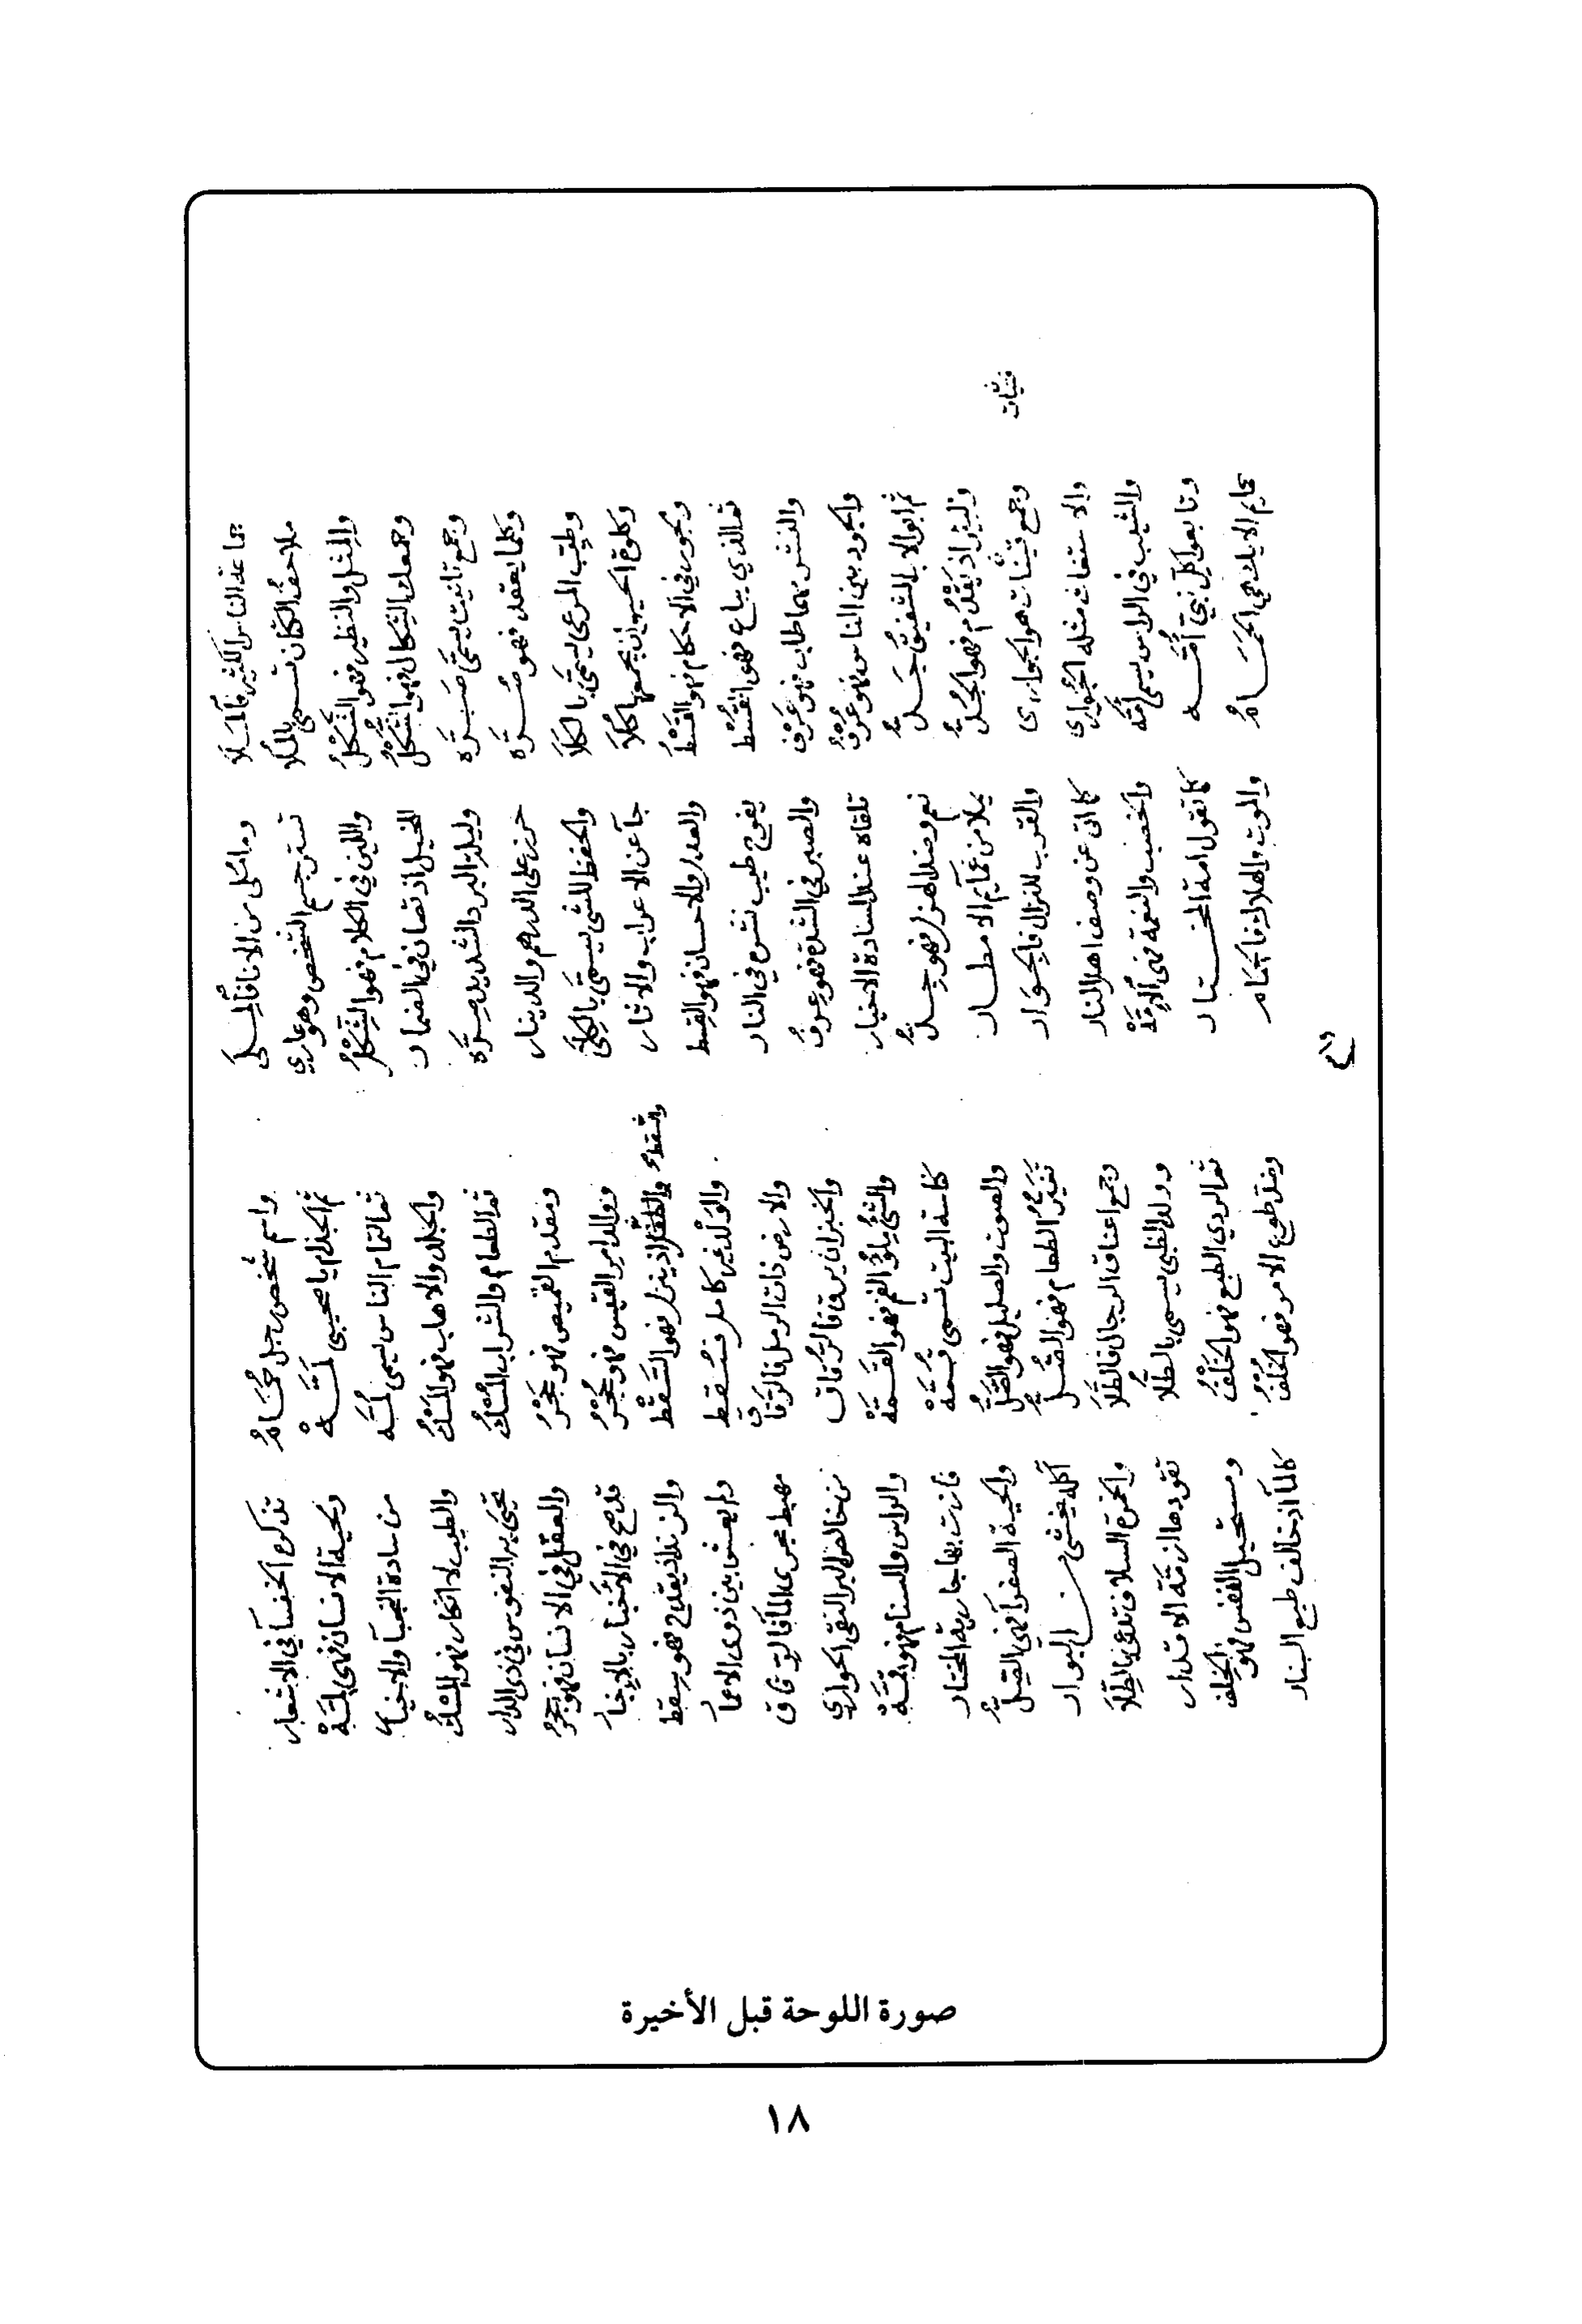 جماعة الناس الكثير فالمَلَا وما مُلى من الانا فالمِلَى
ملاحف الكتان تسمى بالمُلا تستر جسم الشخص وهو عاري
والمثل والنظير فهو الشَّكْلُ واللين في الكلام فهو الشِّكْلُ
وجمعك الشكال فهو الشُّكْلُ الخيل اذ تصان في المضمار
وجمع تانيث يسمّى صَرَّه وليلة البرد الشديد صِرَّه
وكلما يعقد فهو صُرَّه حرز على الدرهم والدينار
وطيب المرعى يسمّى بالكَلَا والحفظ للشي يسمّى بالكِلَى
وكلوة الحيوان يجمعها كُلَا جآ عن الاعراب والاثار
ويجور في الاحكام فهو القَسْط والعدل والاحسان فهو القِسط
ثم الذي يباع فهو القُسْط يفوح طيب نشره في النار
والنشر مهما طاب فهو عَرْف والصبر في الشدة فهو عِرفُ
والجود بين الناس فهو عُرْفُ تلقاه عند السادة الاخيار
ثم ابو الاب الشفيق جَدُّ نعم وضد الهزل فهو جِدُّ
والبئر اذ يقدم فهو الجُدُّ يملا من غمايم الامطار
وجمع قينات هو الجواري والقرب للنزال فالجِوَار
والاستغاث مثله الجُوار كما اتى عن وصف اهل النار
والشيب في الراس يسمى أَمَّه والخصب والنعمة فهي الإِمَّة
وتابعوا كل نبي أُمَّه كما تقول امة المختار
حمايم الايك هي الحَمَامُ والموت والهلاك فالحِمَام
واسم شخص رجل حُمَامُ تذكره الخنسآ في الاشعار
ثم الجذام يا صحيبي لَمَّهْ ولحية الانسان فهي لِمَّهْ
ثم التمام الناس يسمى لُمَّه من سادة النجبا والاخيار
والجلد والاهاب فهو المَسْكُ والطيب لا انكار فهو المِسْكُ
ثم الطعام والشراب المُسْكُ تحيى به النفوس في ذي الدار
ومقدم القميص فهو حَجْرُ والعقل في الانسان فهو حِجْرُ
ووالد امرء القيس فهو حُجْرُ قد صح في الاخبار
والثلج اذ ينزل فهو السَّقْط والزند اذ يقدح فهو سِقط
والوَلْد غير كامل فسُقط ولم يعش بين ذوي الاعما
والارض ذات الرمل فالرَّقاق مهبط مجرى المآ فالرِقاق
والخبز ان يرق فالرُّقاق من خالص البر النقي الحواري
والشي يلق الفم فهو القَمَّهْ والراس والسنام فهو قِمَّهْ
كناسة البيت تسمى قُمَّهْ فازت بها جارية المختار
والصوت والصليل فهو الصَّلُّ والحية الصفرآ فهي الصِلُّ
تغيّر الطعام فهو الصُّلُّ
وجمع اعناق الرجال فالطُّلَا والخمرة السلاف تلقى بالطِّلَا
وولد الظبي يسمى بالطَّلَا تقودها ازمّة الاقدار
ثم الردي الطبع فهو الخَلْفُ ومستحيل النفس فهو الخِلف
وضد طوع الامر فهو الخُلْفُ كالمآ اذ خالف طبع النار
صورة اللوحة قبل الأخيرة
١٨